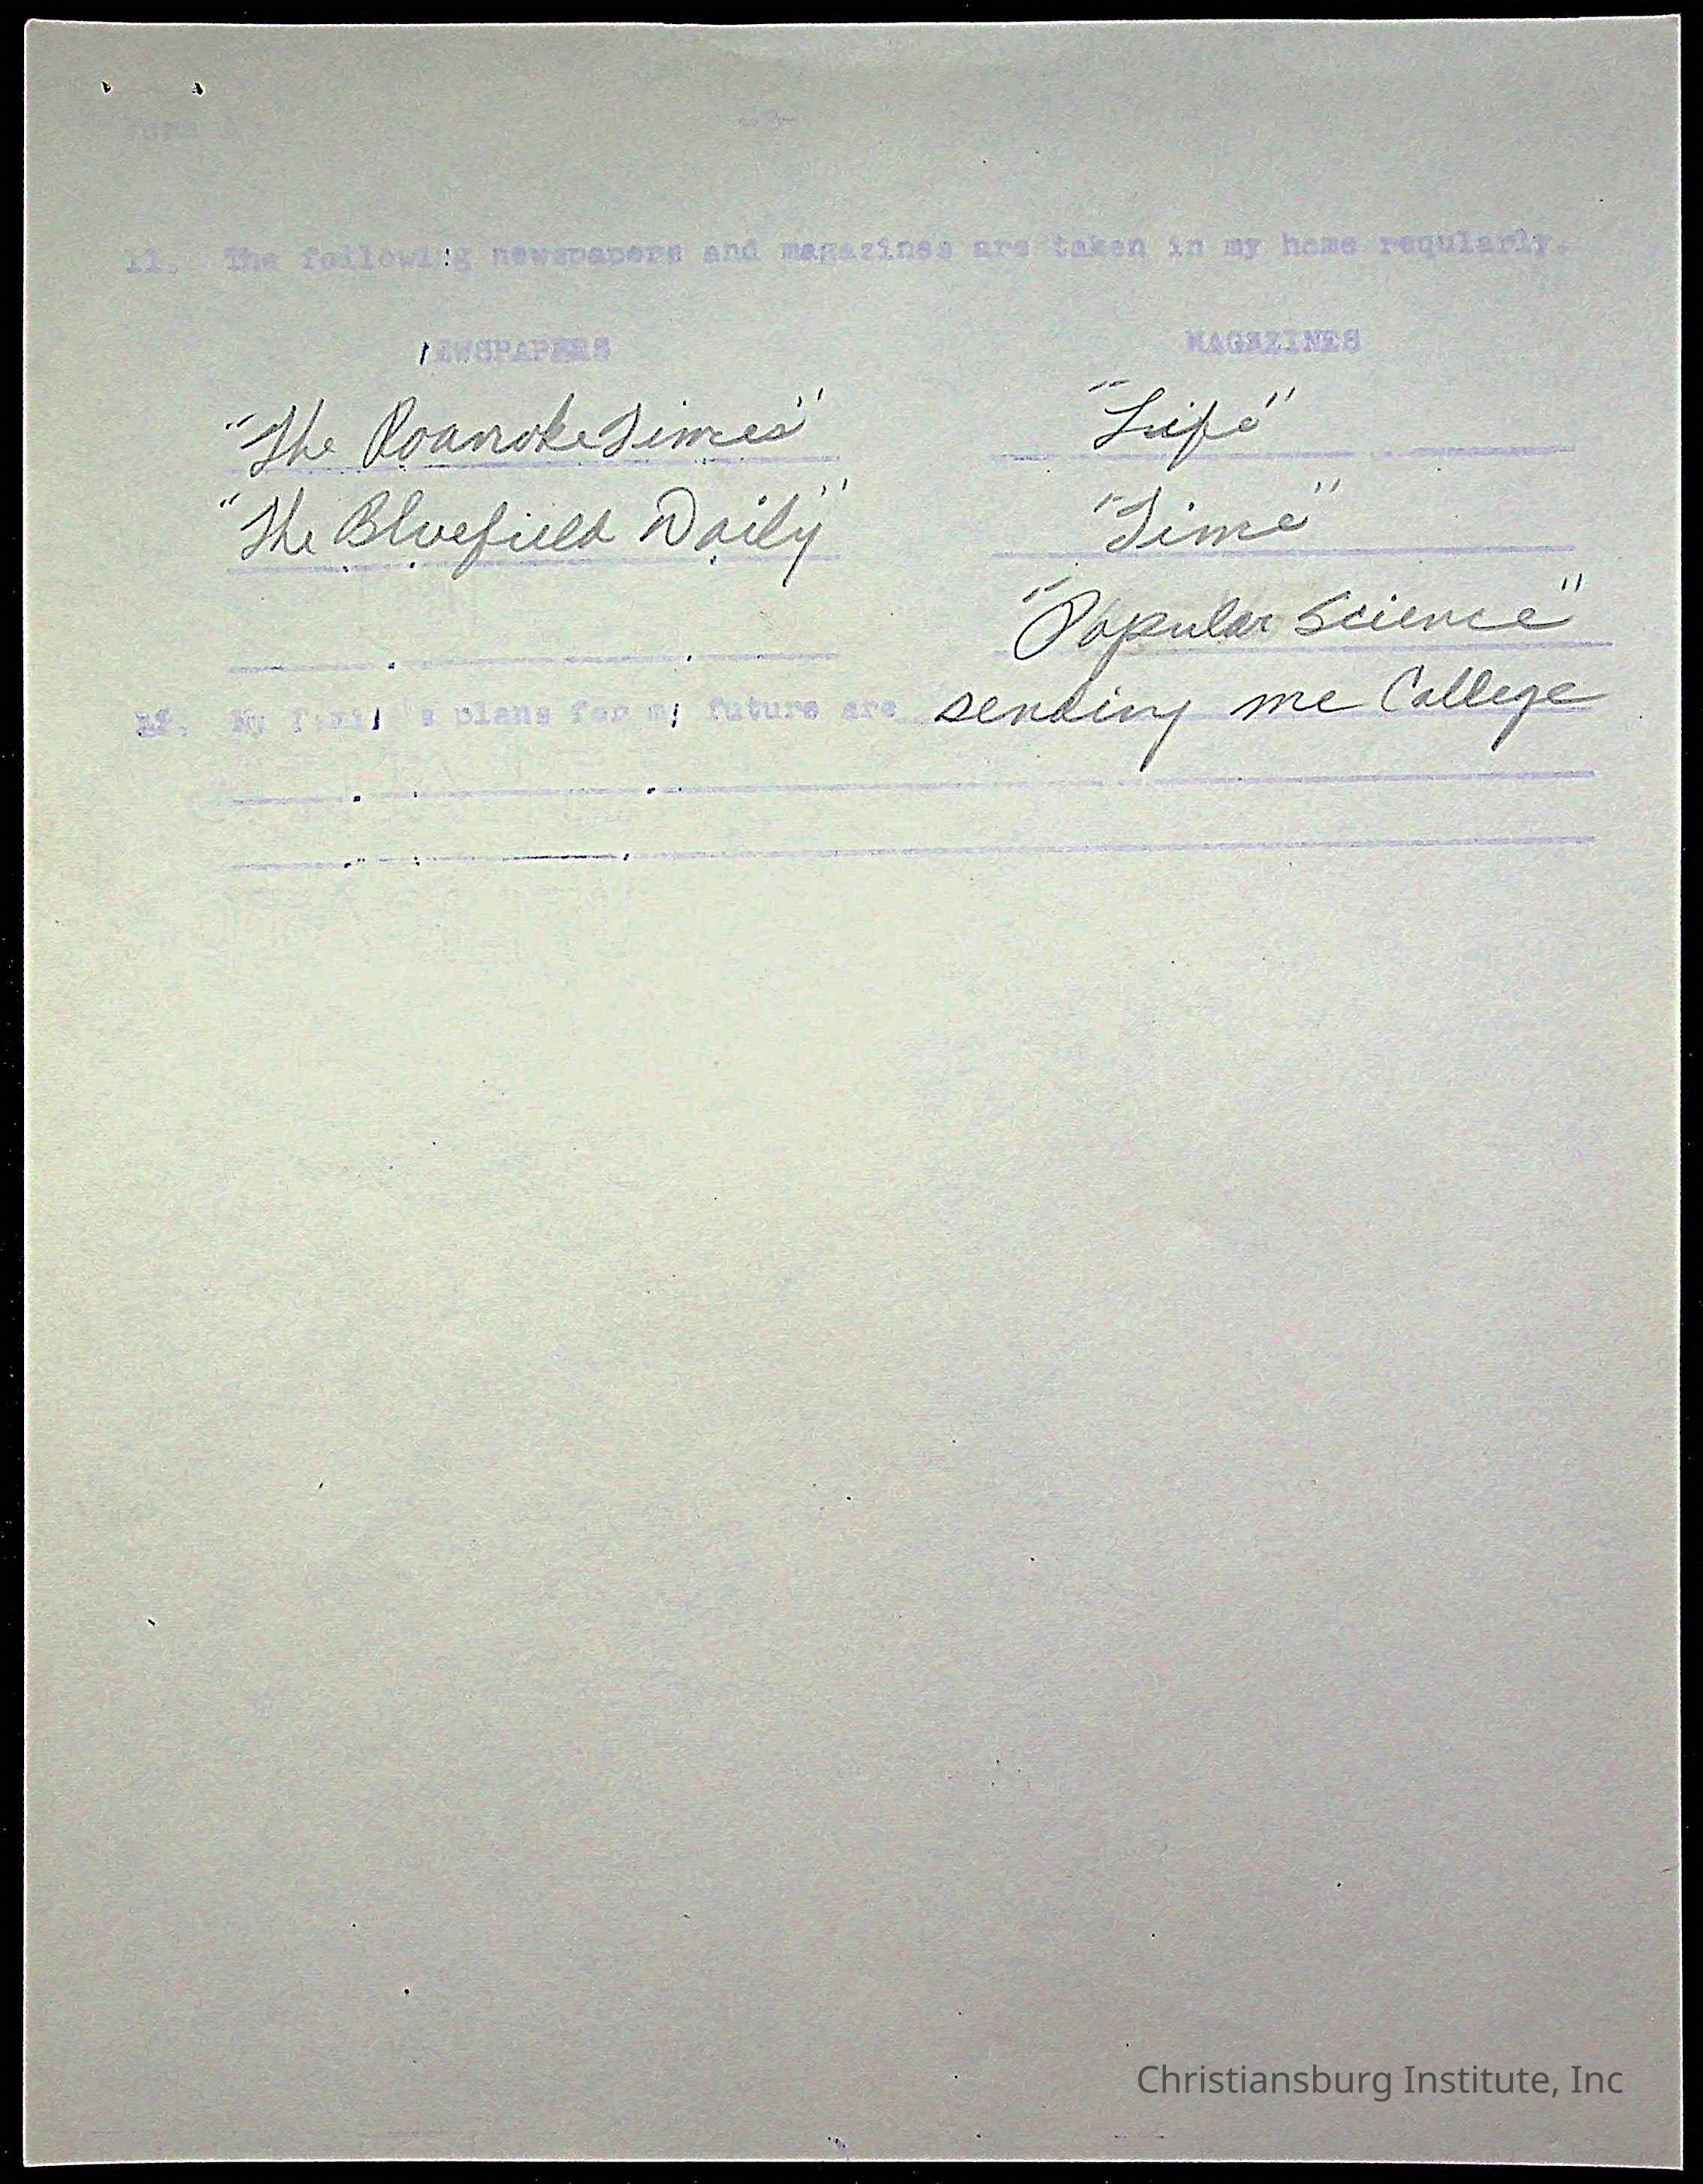 Form
11. The following newspapers and magazines are taken in my home reqularly.
NEWSPAPERS MAGAZINES
"The Roanoke Times" "Life"
"The Bluefield Daily" "Time"
"Popular Science"
My family's plans for my future are sending me College
Christiansburg Institute, Inc